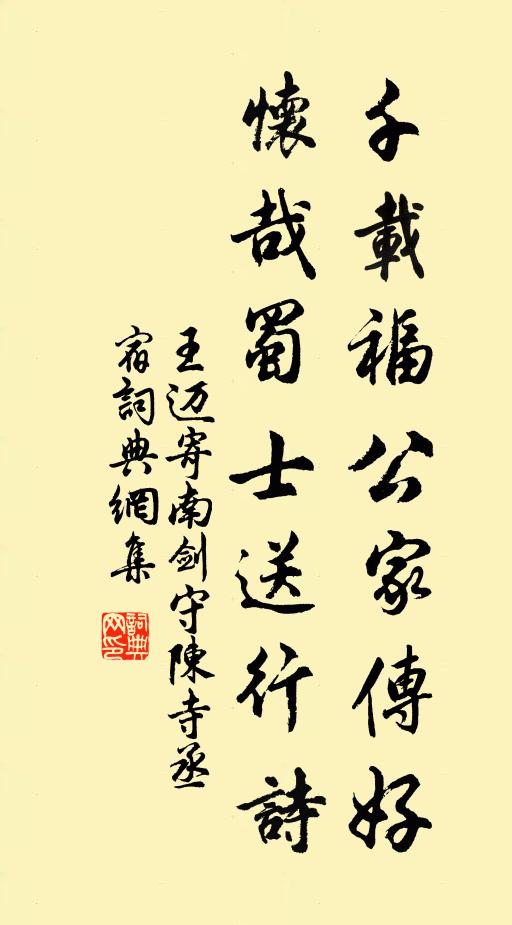 千載福公家傳好
懷哉蜀士送行詩
王迈寄南剑守陳寺丞
宿詞典網集
詞典
网印